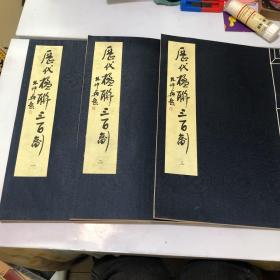 歷代楹聯三百副
一
歷代楹聯三百副
二
歷代楹聯三百副
三